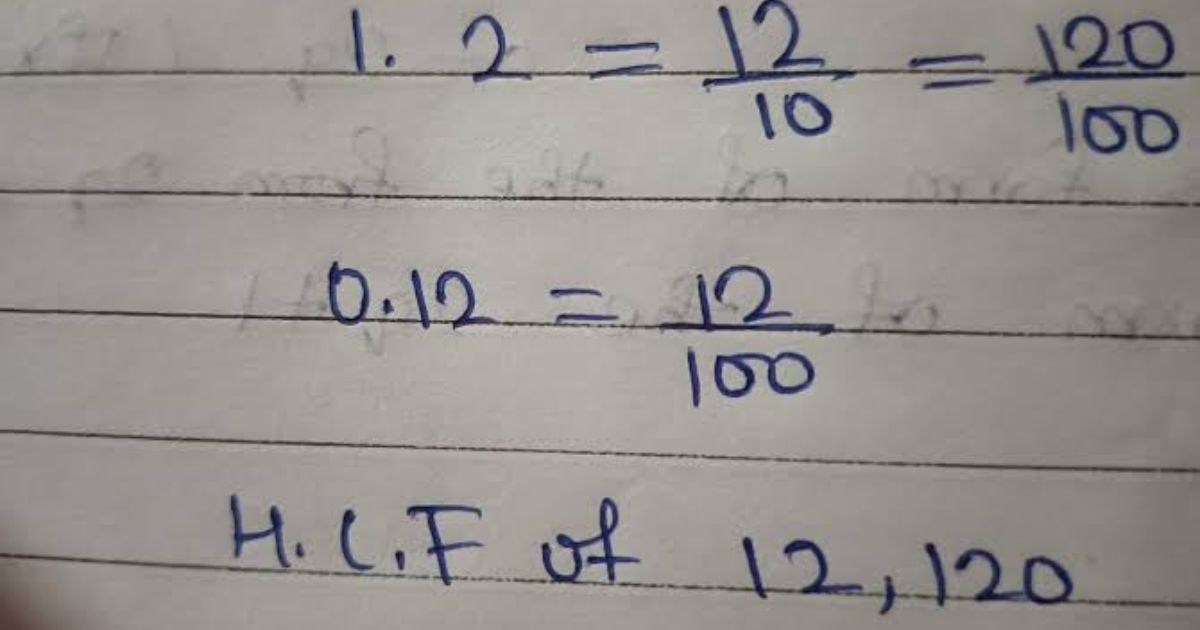 1.2 = 12/10 = 120/100
0.12 = 12/100
H.C.F of 12,120